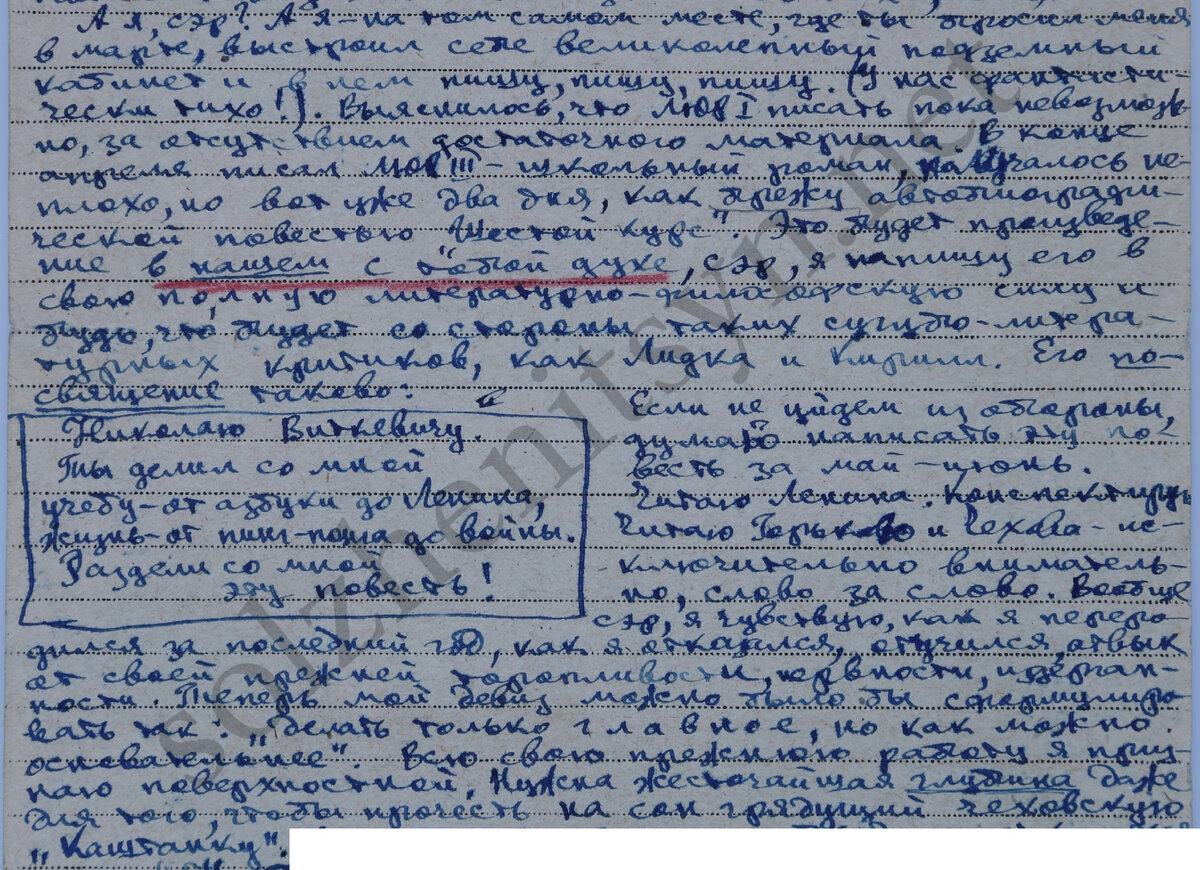 А я, сэр? А я – на том самом месте, где ты бросил меня
в марте, выстроил себе великолепный подземный
кабинет и в нём пишу, пишу, пишу. (У нас фантасти-
чески тихо!). Выяснилось, что ЛЮР I писать пока невозмож-
но, за отсутствием достаточного материала. В конце
апреля писал ЛЮР III – школьный роман, получалось не-
плохо, но вот уже два дня, как брежу автобиографи-
ческой повестью "Шестой курс". Это будет произведе-
ние в нашем с тобой духе, сэр, я напишу его в
свою полную литературно-философскую силу и
будь, что будет со стороны таких сугубо-литера-
турных критиков, как Лидка и Кирилл. Его по-
священие таково:
Николаю Виткевичу.
Ты делил со мной
учебу – от азбуки до Ленина,
жизнь – от пинг-понга до войны.
Раздели со мной
эту повесть!
Если не уйдем из обороны,
думаю написать эту по-
весть за май – июнь.
Читаю Ленина. Конспектирую
Читаю Горького и Чехова – ис-
ключительно вниматель-
но, слово за слово. Вообще
сэр, я чувствую, как я перero-
дился за последний год, как я отказался, отучился, отвык
от своей прежней торопливости, нервности, издерган-
ности. Теперь мой девиз можно было бы сформулиро
вать так: „Делать только главное, но как можно
основательнее". Всю свою прежнюю работу я приз-
наю поверхностной. Нужна жесточайшая глубина даже
для того, чтобы прочесть на сон грядущий чеховскую
„Каштанку".
solzhenitsyn.net